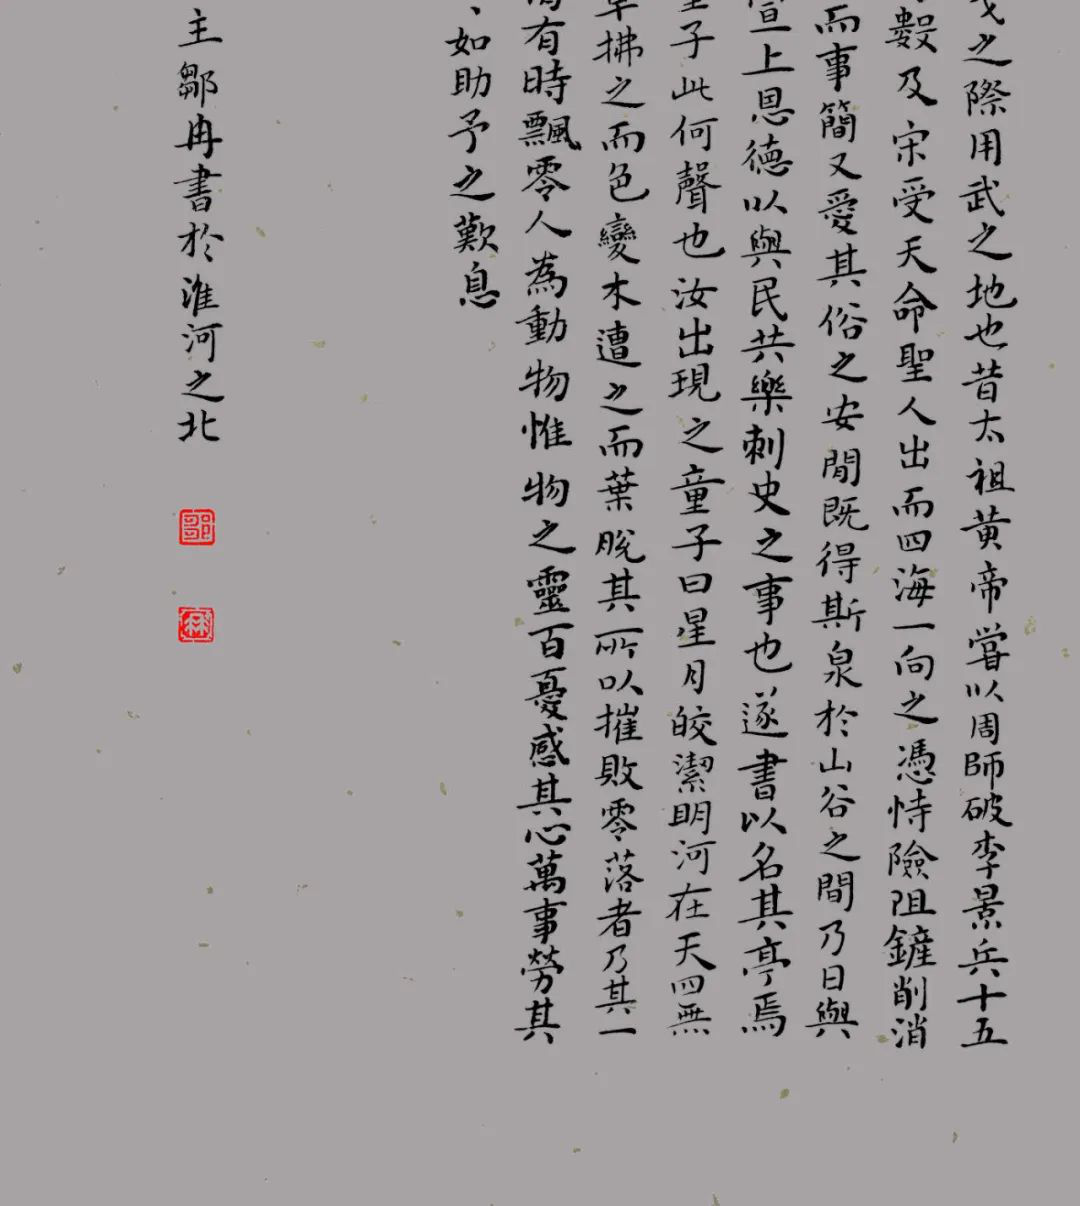 之際用武之地也昔太祖黄帝嘗以周師破李景兵十五
數及宋受天命聖人出而四海一向之憑恃險阻鏟削消
而事簡又愛其俗之安閒既得斯泉於山谷之間乃日與
宣上恩德以與民共樂刺史之事也遂書以名其亭焉
子此何聲也汝出現之童子曰星月皎潔明河在天四無
草拂之而色變木遭之而葉脫其所以摧敗零落者乃其一
有時飄零人為動物惟物之靈百憂感其心萬事勞其
如助予之歎息
主鄒冉書於淮河之北
鄒